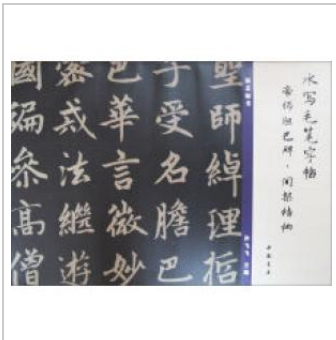 水写毛笔字帖
帝师胆巴碑·间架结构
中国书店
聖師綽理哲
于受名膽巴
巴華言微妙
密戒法繼遊
國徧參高僧